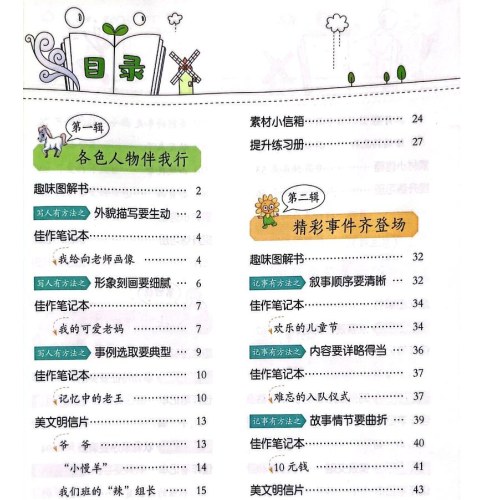 目录
第一辑
各色人物伴我行
趣味图解书 2
写人有方法之 外貌描写要生动 2
佳作笔记本 4
我给向老师画像 4
写人有方法之 形象刻画要细腻 6
佳作笔记本 7
我的可爱老妈 7
写人有方法之 事例选取要典型 9
佳作笔记本 10
记忆中的老王 10
美文明信片 13
爷爷 13
“小慢羊” 14
我们班的“辣”组长 15
素材小信箱 24
提升练习册 27
第二辑
精彩事件齐登场
趣味图解书 32
记事有方法之 叙事顺序要清晰 32
佳作笔记本 34
欢乐的儿童节 34
记事有方法之 内容要详略得当 36
佳作笔记本 37
难忘的入队仪式 37
记事有方法之 故事情节要曲折 39
佳作笔记本 40
10元钱 41
美文明信片 43